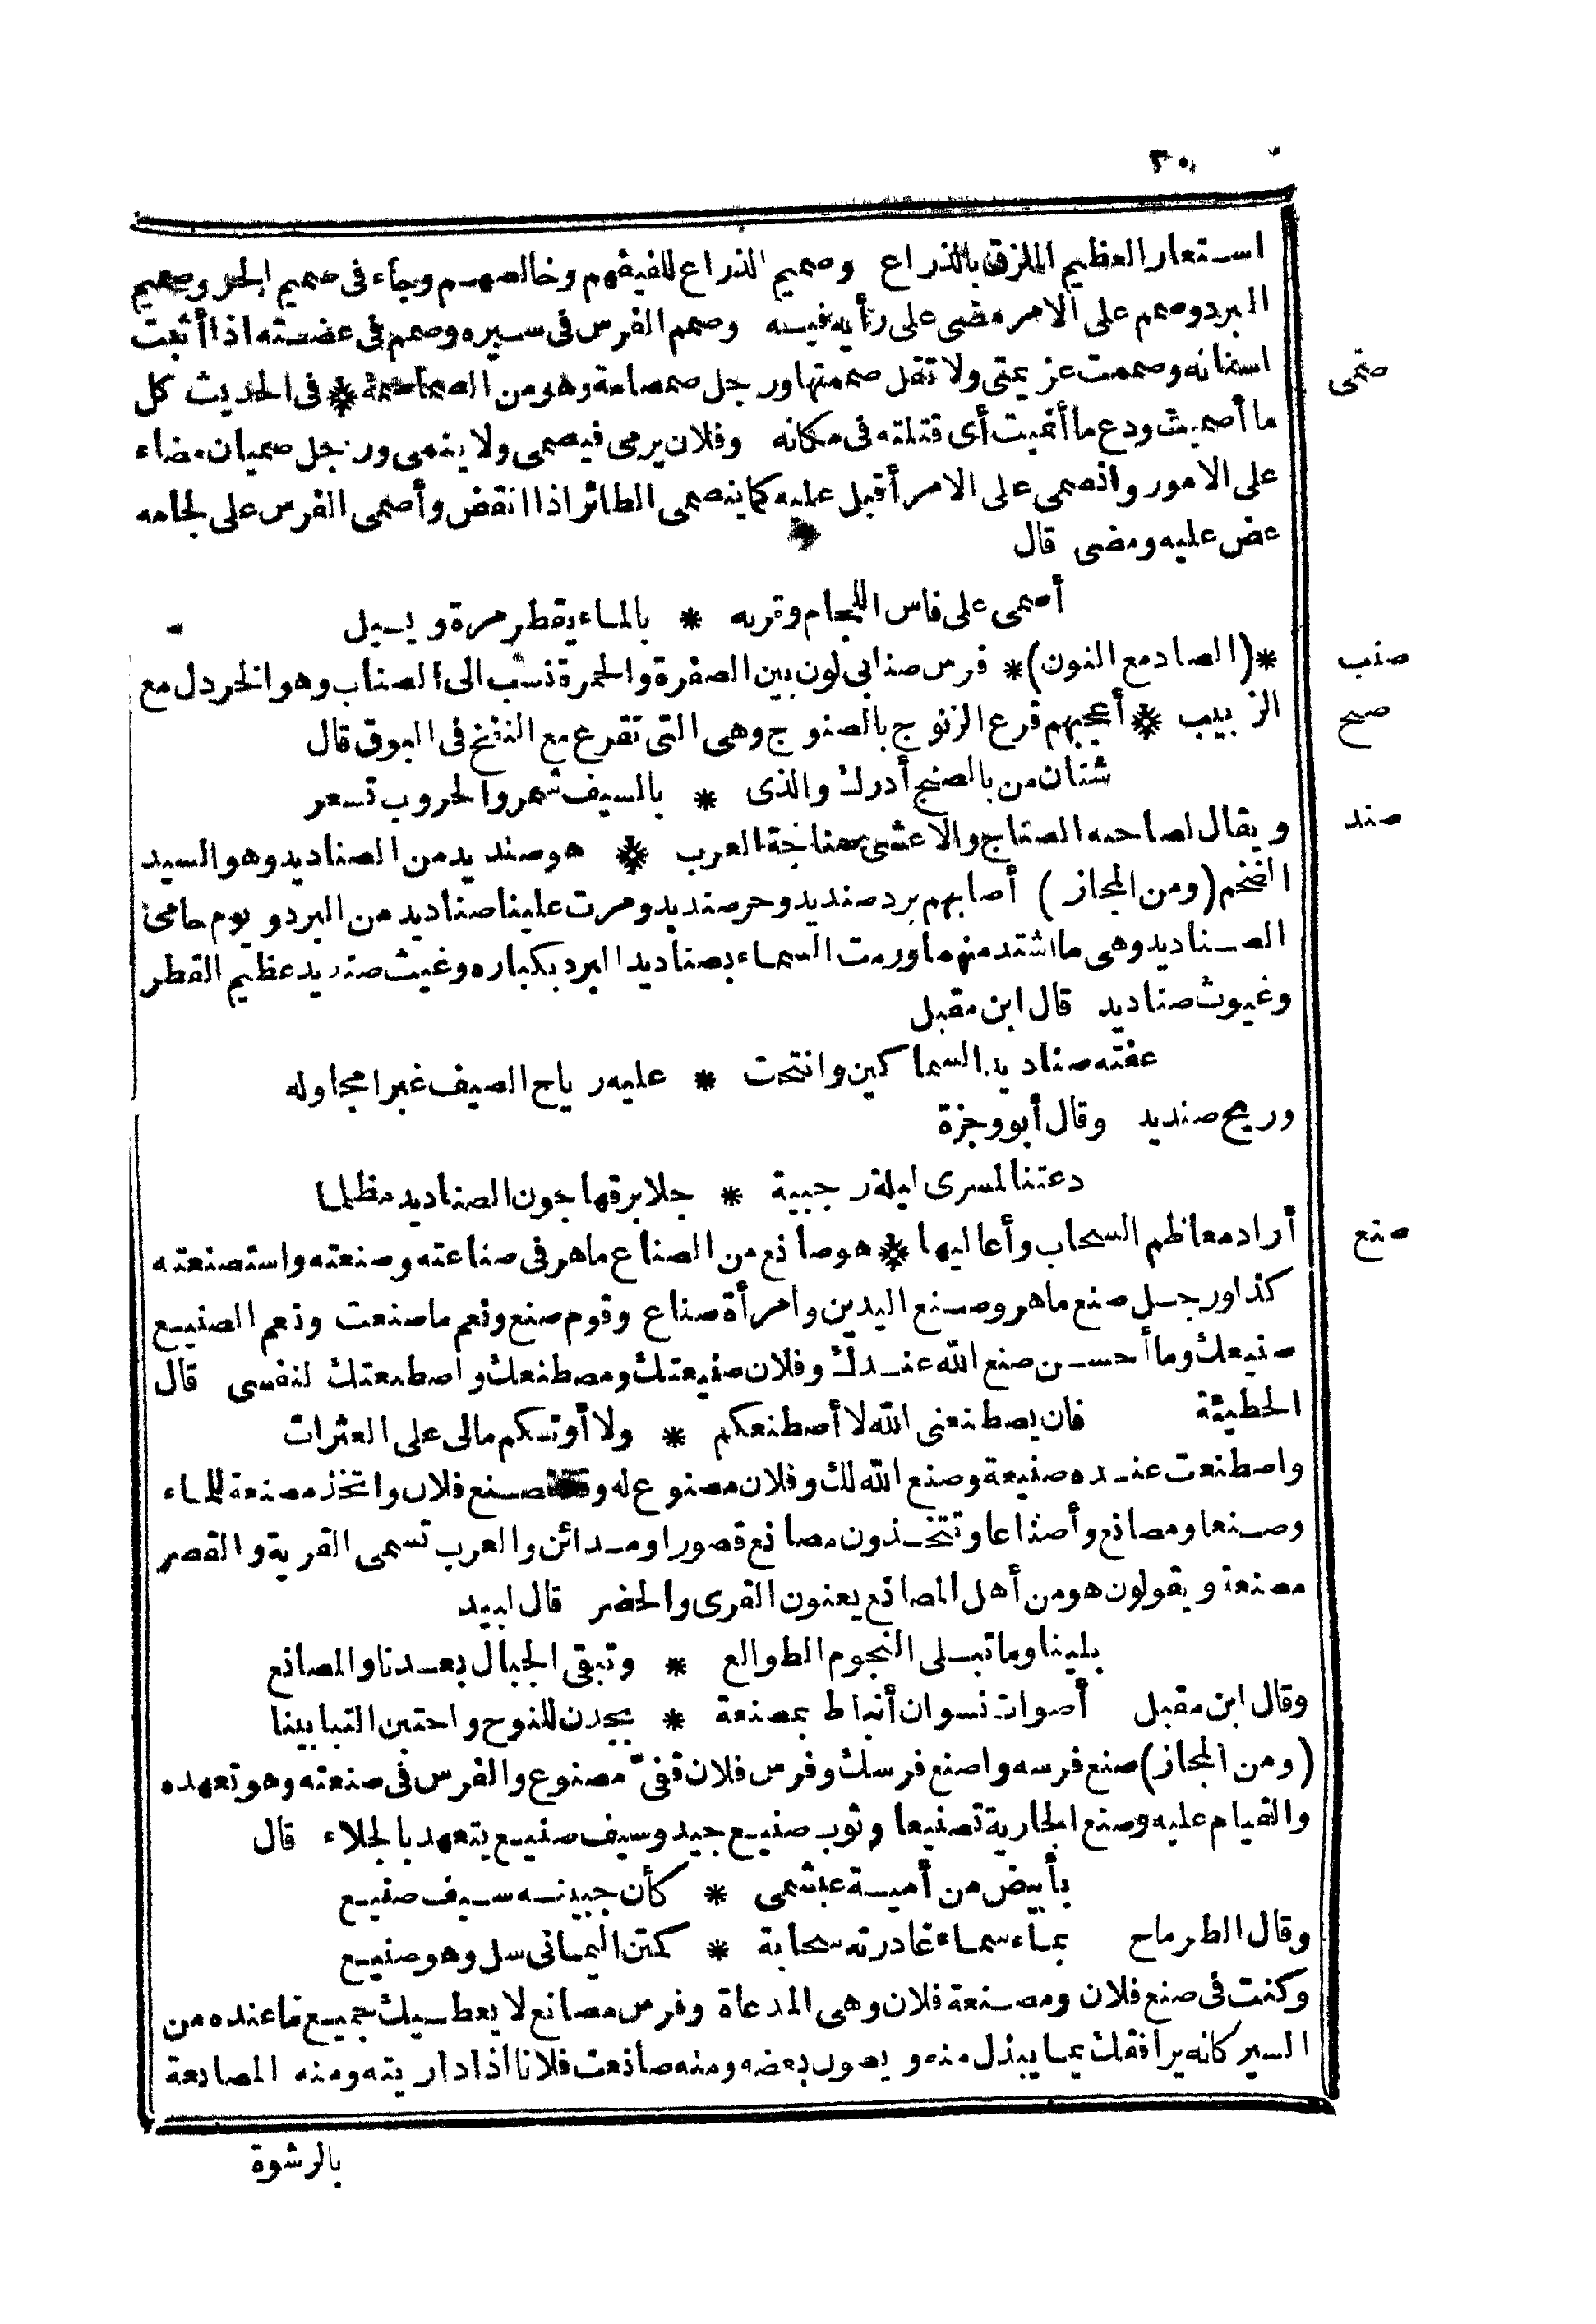 ٣٠
استعار العظيم الملزق بالذراع وصميم الذراع للفيفهم وخالصهم وجاء في صميم الحر وصميم
البرد وصمم على الامر مضى على رأيه فيه وصمم الفرس في سيره وصمم في عضته اذا أثبت
صمى
اسنانه وصممت عزيمتي ولا تقل صممتها ورجل صمصامة وهو من الصماصمة * في الحديث كل
ما أصميت ودع ما أنميت أى قتلته في مكانه وفلان يرمى فيصمى ولا ينمى ورجل صميان مضاء
على الامور وانصمى على الامر أقبل عليه كما ينصمى الطائر اذا انقض وأصمى الفرس على لجامه
عض عليه ومضى قال
أصمى على فاس اللجام وقربه * بالماء يقطر مرة ويسيل
صنب
*(الصاد مع النون)* فرس صنابى لون بين الصفرة والحمرة نسب الى الصناب وهو الخردل مع
صنج
الزبيب * أعجبهم قرع الزنوج بالصنوج وهى التى تقرع مع النفخ فى البوق قال
شتان من بالصنج أدرك والذى * بالسيف شمر والحروب تسعر
صند
ويقال لصاحبه الصناج والاعشى صناجة العرب * هو صنديد من الصناديد وهو السيد
الضخم (ومن المجاز) أصابهم برد صنديد وحر صنديد ومرت علينا صناديد من البرد ويوم حامى
الصناديد وهى ما اشتد منها ورمت السماء بصناديد البرد بكباره وغيث صنديد عظيم القطر
وغيوث صناديد قال ابن مقبل
عفته صناديد السماكين وانتحت * عليه رياح الصيف غبرا مجاوله
وريح صنديد وقال أبو وجزة
دعتنا لمسرى ليلة رجبية * جلا برقها جون الصناديد مظلما
صنع
أراد معاظم السحاب وأعاليها * هو صانع من الصناع ماهر فى صناعته وصنعته واستصنعته
كذا ورجل صنع ماهر وصنع اليدين وامرأة صناع وقوم صنع ونعم ما صنعت ونعم الصنيع
صنيعك وما أحسن صنع الله عندك وفلان صنيعتك ومصطنعك واصطنعتك لنفسى قال
الحطيئة فان يصطنعنى الله لا أصطنعكم * ولا أوتكم مالى على العثرات
واصطنعت عنده صنيعة وصنع الله لك وفلان مصنوع له وتصنع فلان واتخذ مصنعة للماء
وصنعا ومصانع وأصناعا وتتخذون مصانع قصورا ومدائن والعرب تسمى القرية والقصر
مصنعة ويقولون هو من أهل المصانع يعنون القرى والحضر قال لبيد
بلينا وما تبلى النجوم الطوالع * وتبقى الجبال بعدنا والمصانع
وقال ابن مقبل أصوات نسوان أنباط بمصنعة * بجدن للنوح واجتبن التبابينا
(ومن المجاز) صنع فرسه واصنع فرسك وفرس فلان قفىّ مصنوع والفرس فى صنعته وهو تعهده
والقيام عليه وصنع الجارية تصنيعا وثوب صنيع جيد وسيف صنيع يتعهد بالجلاء قال
بأبيض من أمية عبشمى * كأن جبينه سيف صنيع
وقال الطرماح بماء سماء غادرته سحابة * كمتن اليمانى سل وهو صنيع
وكنت فى صنع فلان ومصنعة فلان وهى المدعاة وفرس مصانع لا يعطيك جميع ما عنده من
السير كانه يرافقك بما يبذل منه ويصون بعضه ومنه صانعت فلانا اذا داريته ومنه المصانعة
بالرشوة